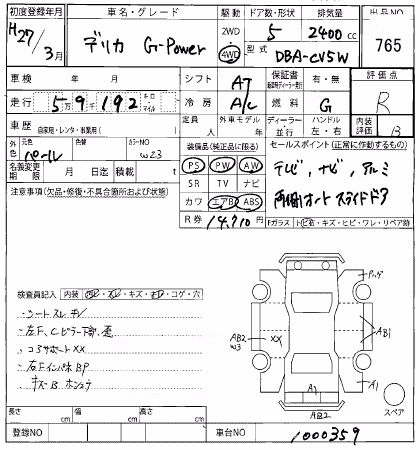 初度登録年月 車名・グレード 駆動 ドア数・形状 排気量 出品NO
H27/3月 デリカ G-Power 2WD 4WD 5 2400cc 765
型式 DBA-CV5W
車検 年 月 シフト AT 保証書 有・無 評価点
走行 5万9192 キロ・マイル 冷房 A/C 燃料 G R
車歴 自家用・レンタ・事業用( ) 定員 人 外車モデル 年 ディーラー・並行 ハンドル 左・右 内装評価 B
外色 元色 パール カラーNO W23 装備品(純正品に限る) セールスポイント(正常に作動するもの)
名義変更期限 月 日迄 積載 t PS PW AW テレビ、ナビ、アルミ
注意事項(欠品・修復・不具合箇所および状態) SR TV ナビ 両側オートスライドドア
カワ エアB ABS
R券 14,710円 Fガラス トビ石・キズ・ヒビ・ワレ・リペア跡
検査員記入 内装
シートスレ
左F、Cピラー下部
コアサポートXX
右FインパネBP
AB2 W3 XX AB1
A1
AB2
スペア
長さ cm 幅 cm 高さ cm
登録NO 車台NO 1000359